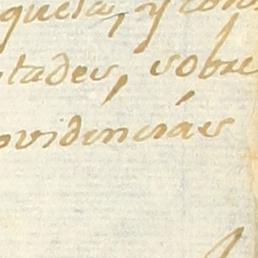 queta, y con
tades, sobre
ovidincias